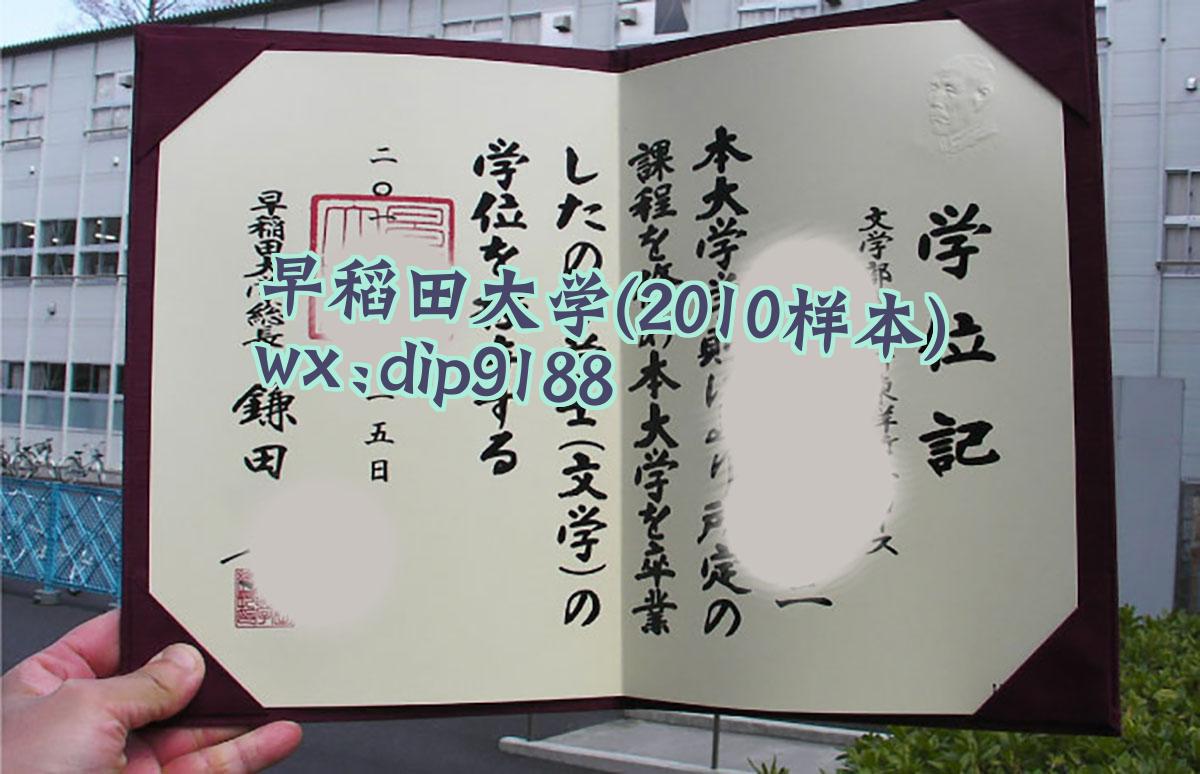 学位記
文学部 ース
二
本大学学則により所定の
課程を修め本大学を卒業
したので学士(文学)の
学位を授与する
二〇 五日
早稲田大学総長 鎌田
早稲田大学(2010样本)
wx:dip9188